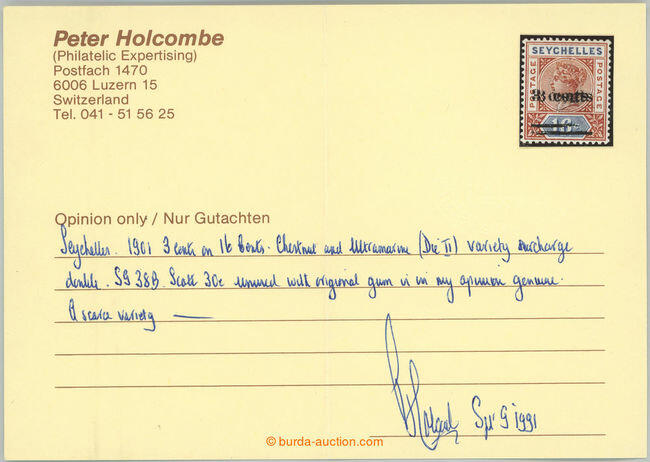 Peter Holcombe
(Philatelic Expertising)
Postfach 1470
6006 Luzern 15
Switzerland
Tel. 041 - 51 56 25
SEYCHELLES
POSTAGE
POSTAGE
3 cents
Opinion only / Nur Gutachten
Seychelles. 1901 3 cents on 16 Cents. Chestnut and Ultramarine (Die II) variety surcharge
double. SG 38B. Scott 30c unused with original gum is in my opinion genuine.
A scarce variety —
Holcombe Sept 9 1991
© burda-auction.com